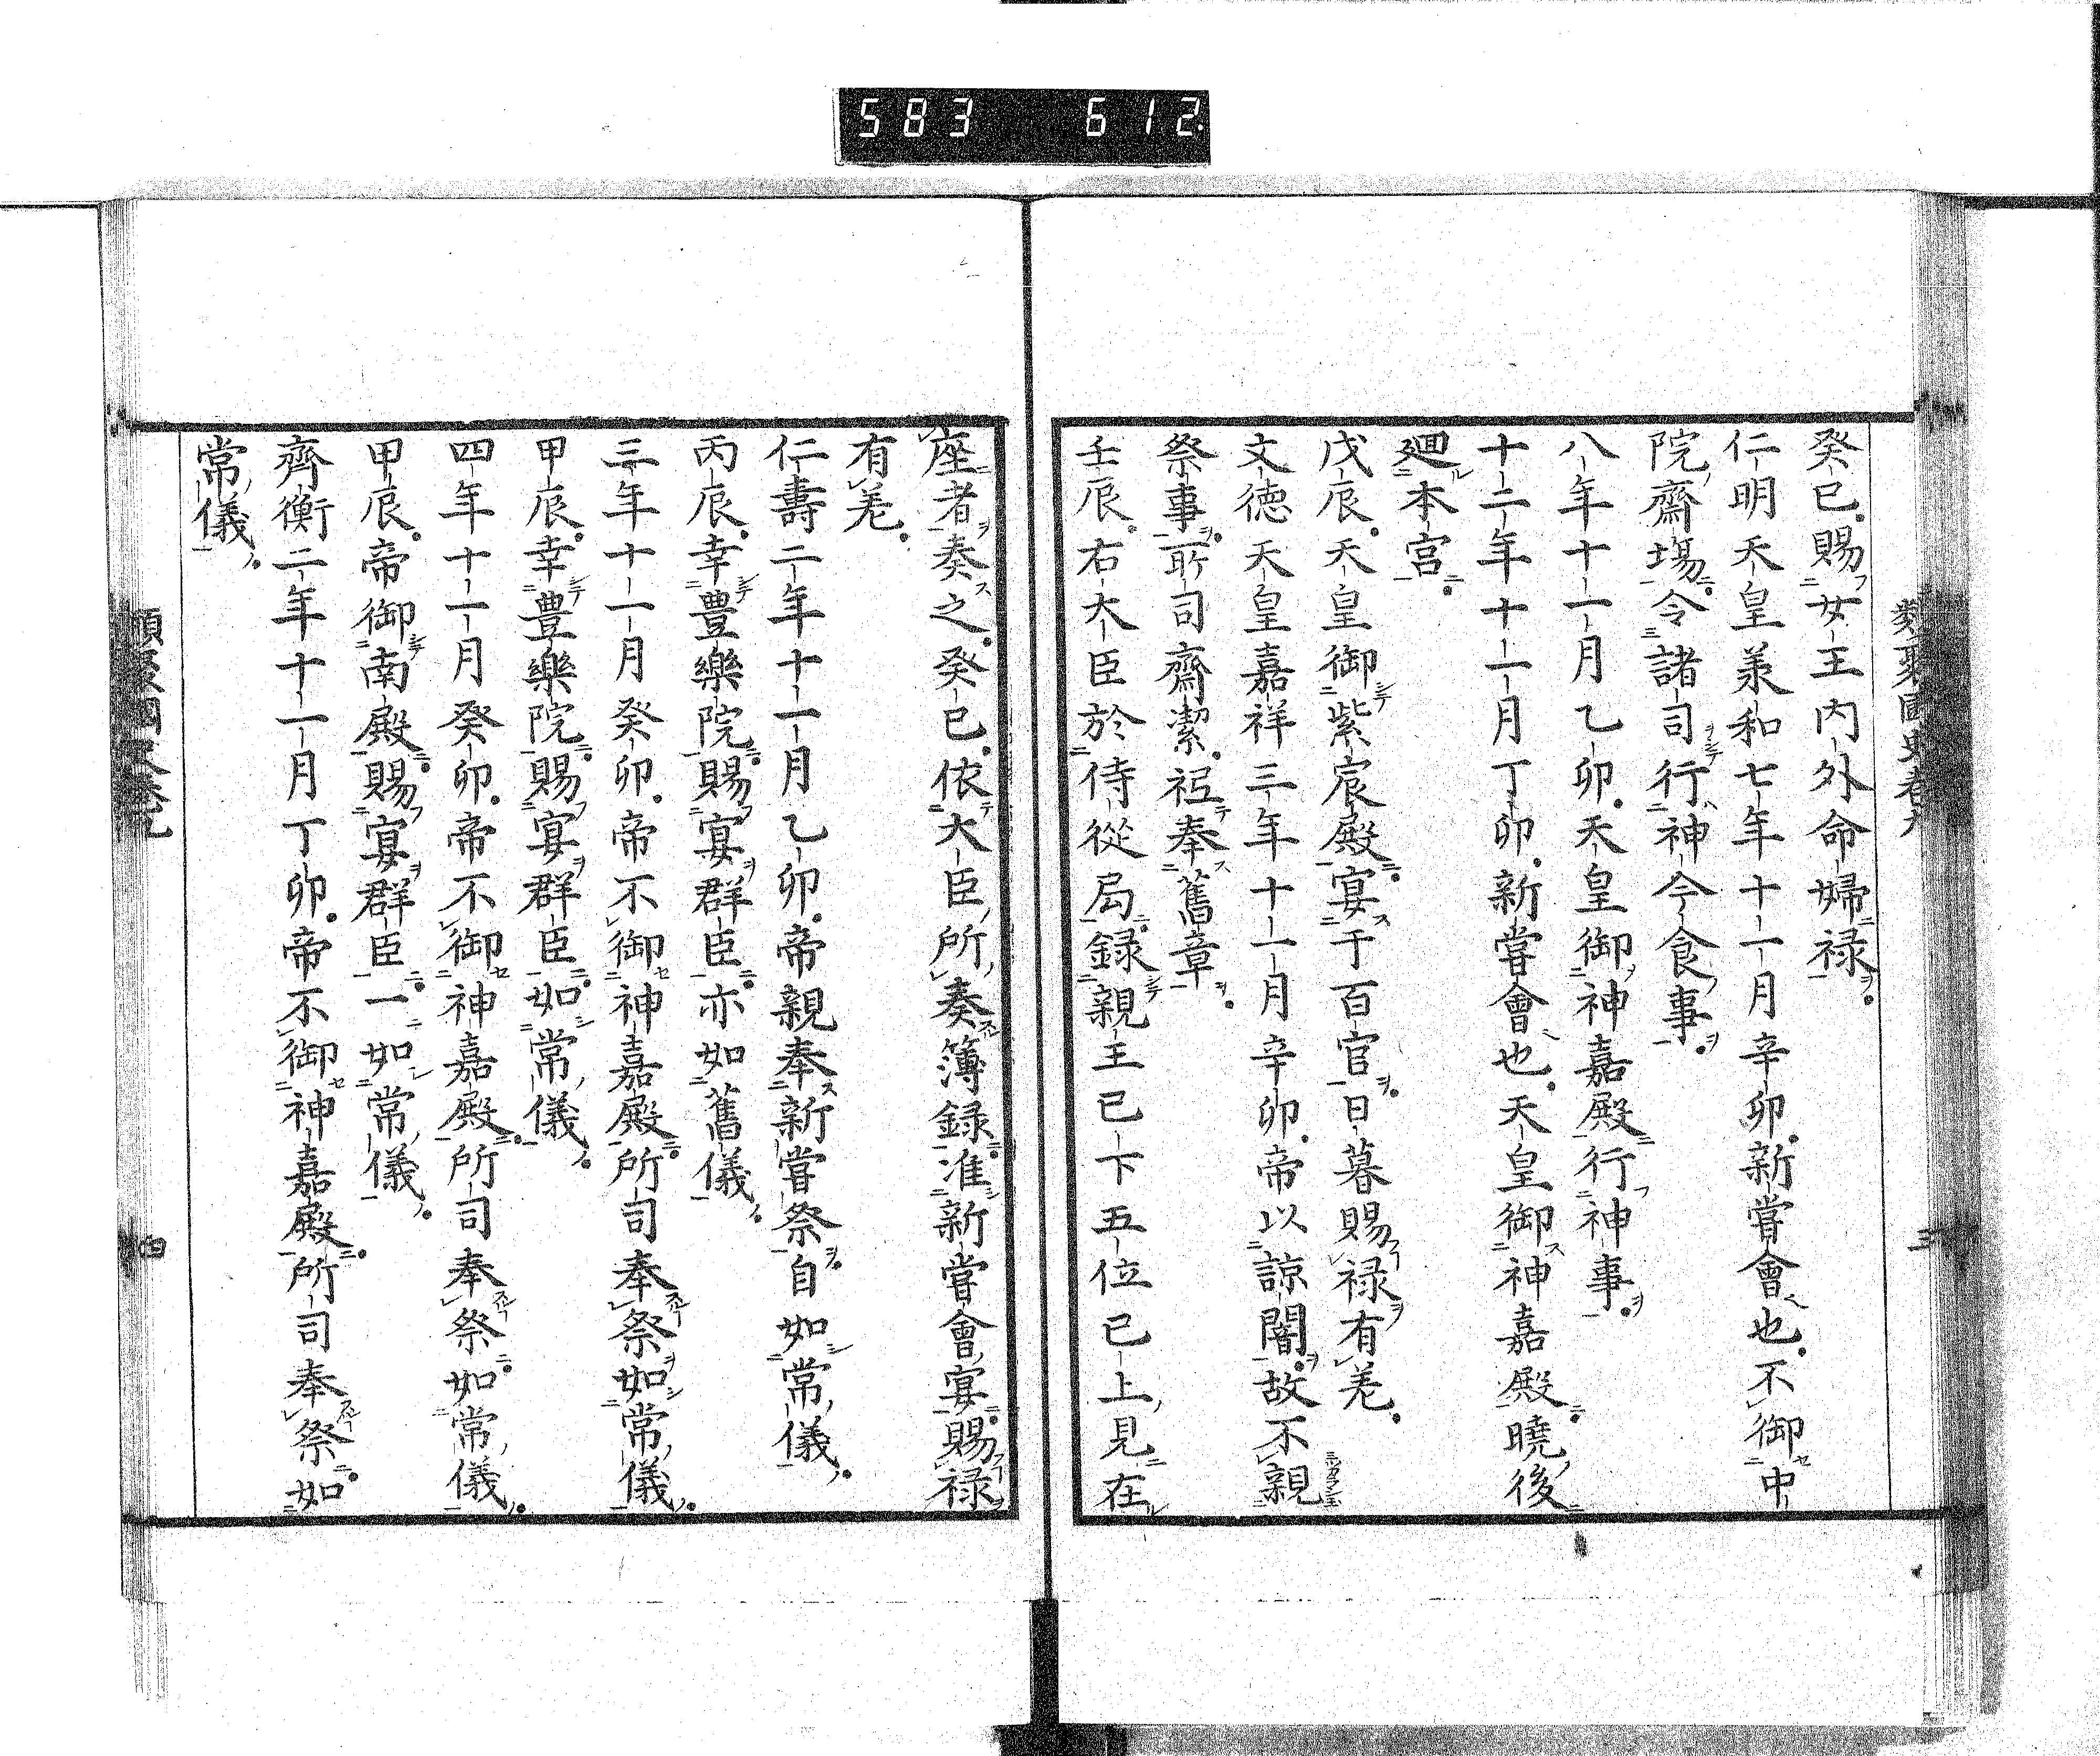 583 612.
類聚國史卷九
三
癸巳。賜女王内外命婦禄。
仁明天皇羕和七年十一月辛卯。新嘗會也。不御中
院齋塲。令諸司行神今食事。
八年十一月乙卯。天皇御神嘉殿行神事。
十二年十一月丁卯。新嘗會也。天皇御神嘉殿。曉後
廻本宮。
戊辰。天皇御紫宸殿。宴于百官。日暮賜禄有差。
文徳天皇嘉祥三年十一月辛卯。帝以諒闇。故不親
祭事。所司齋潔。祗奉舊章。
壬辰。右大臣於侍從局。録親王已下五位已上見在
座者奏之。癸巳。依大臣所奏簿録。准新嘗會宴。賜禄
有差。
仁壽二年十一月乙卯。帝親奉新嘗祭。自如常儀。
丙辰。幸豊樂院。賜宴群臣。亦如舊儀。
三年十一月癸卯。帝不御神嘉殿。所司奉祭如常儀。
甲辰。幸豊樂院。賜宴群臣。如常儀。
四年十一月癸卯。帝不御神嘉殿。所司奉祭。如常儀。
甲辰。帝御南殿。賜宴群臣。一如常儀。
齊衡二年十一月丁卯。帝不御神嘉殿。所司奉祭。如
常儀。
類聚國史卷九
四